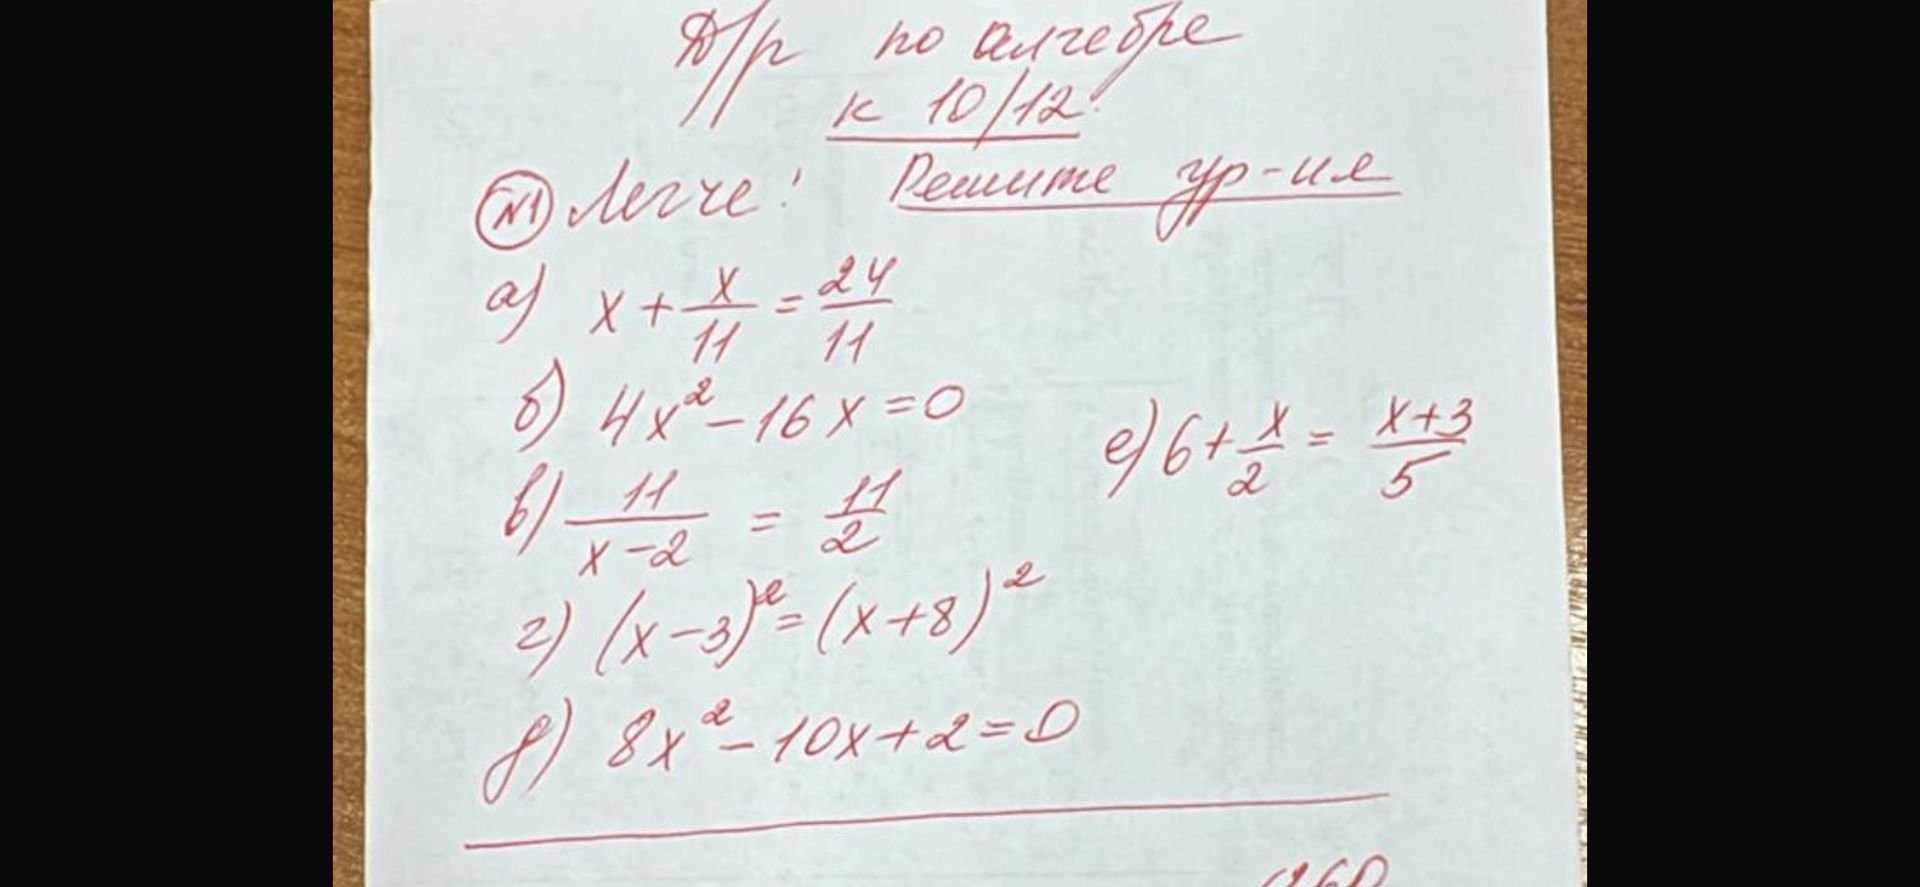 Д/р по алгебре
к 10/12.
№1 Легче! Решите ур-ия
а) x + x/11 = 24/11
б) 4x² - 16x = 0
в) 11/(x-2) = 11/2
г) (x-3)² = (x+8)²
д) 8x² - 10x + 2 = 0
е) 6 + x/2 = (x+3)/5